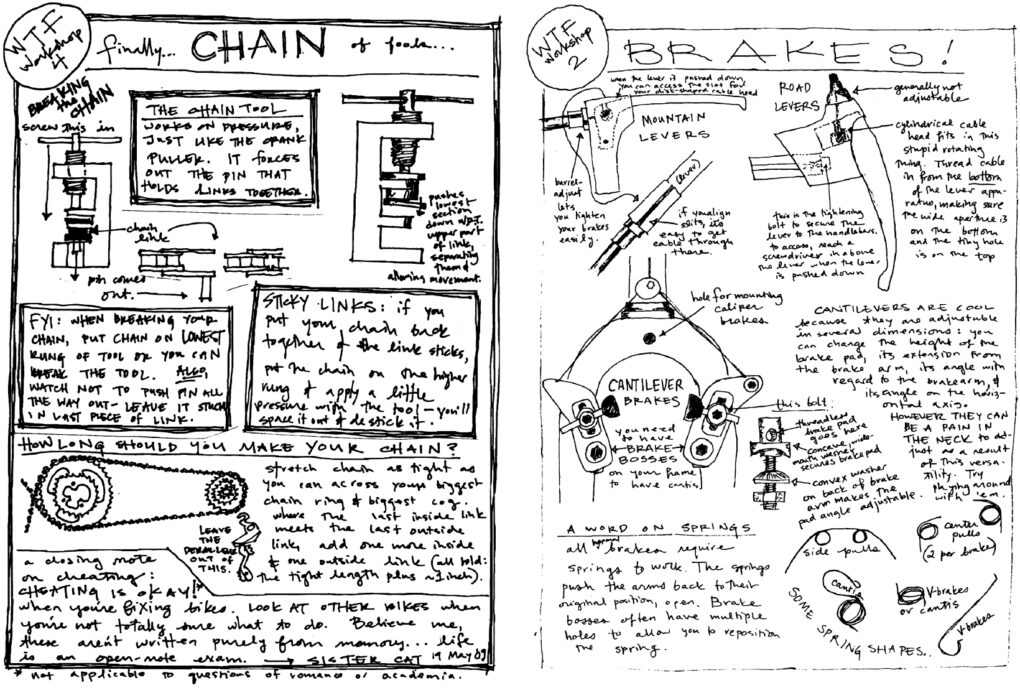 WTF
Workshop
4
finally... CHAIN of fools...
BREAKING
the
CHAIN
screw this in
chain
link
pin comes
out.
THE CHAIN TOOL
WORKS ON PRESSURE,
JUST LIKE THE CRANK
PULLER. IT FORCES
OUT THE PIN THAT
HOLDS LINKS TOGETHER.
pushes
lowest
section
down
upper part
of link,
separating
them &
allowing movement.
FYI: WHEN BREAKING YOUR
CHAIN, PUT CHAIN ON LOWEST
RUNG OF TOOL OR YOU CAN
BREAK THE TOOL. ALSO,
WATCH NOT TO PUSH PIN ALL
THE WAY OUT - LEAVE IT STUCK
IN LAST PIECE OF LINK.
STICKY LINKS: if you
put your chain back
together & the link sticks,
put the chain on the higher
rung & apply a little
pressure with the tool - you'll
space it out & de stick it.
HOW LONG SHOULD YOU MAKE YOUR CHAIN?
stretch chain as tight as
you can across your biggest
chain ring & biggest cog.
where the last inside link
meets the last outside
link, add one more inside
& one outside link (all told:
the tight length plus ~1 inch).
LEAVE
THE
DERAILLEUR
OUT OF
THIS.
a closing note
on cheating:
CHEATING IS OKAY!*
when you're fixing bikes. LOOK AT OTHER BIKES when
you're not totally sure what to do. Believe me,
these aren't written purely from memory... life
is an open-note exam. → SISTER CAT 19 May 09
* not applicable to questions of romance or academia.
WTF
Workshop
2
BRAKES!
when the lever is pushed down,
you can access the slot for
your disk-shaped cable head
MOUNTAIN
LEVERS
barrel-
adjust
lets
you tighten
your brakes
easily.
lever
if you align
slits its
easy to get
cable through
there.
ROAD
LEVERS
generally not
adjustable
cylindrical cable
head fits in this
stupid rotating
thing. Thread cable
in from the bottom
of the lever appa-
ratus, making sure
the wide aperture is
on the bottom
and the tiny hole
is on the top
this is the tightening
bolt to secure the
lever to the handlebars.
to access, reach a
screwdriver in above
the lever when the lever
is pushed down
hole for mounting
caliper
brakes
CANTILEVER
BRAKES
you need
to have
BRAKE
BOSSES
on your frame
to have cantis
CANTILEVERS ARE COOL
because they are adjustable
in several dimensions: you
can change the height of the
brake pad, its extension from
the brake arm, its angle with
regard to the brakearm, &
its angle on the horiz-
ontal axis.
HOWEVER THEY CAN
BE A PAIN IN
THE NECK TO ad-
just as a result
of this versa-
tility. Try
playing around
with 'em.
this bolt:
threaded
brake pad
goes here
concave, wide-
mouth washer
secures brakepad
convex washer
on back of brake
arm makes the
pad angle adjustable.
A WORD ON SPRINGS
all brakes require
springs to work. The springs
push the arms back to their
original position, open. Brake
bosses often have multiple
holes to allow you to reposition
the spring.
side pulls
center
pulls
(2 per brake)
canti
V-brakes
or cantis
V-brakes
SOME
SPRING SHAPES..